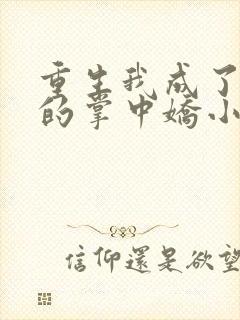 重生我成了
的掌中嬌小
信仰還是欲望